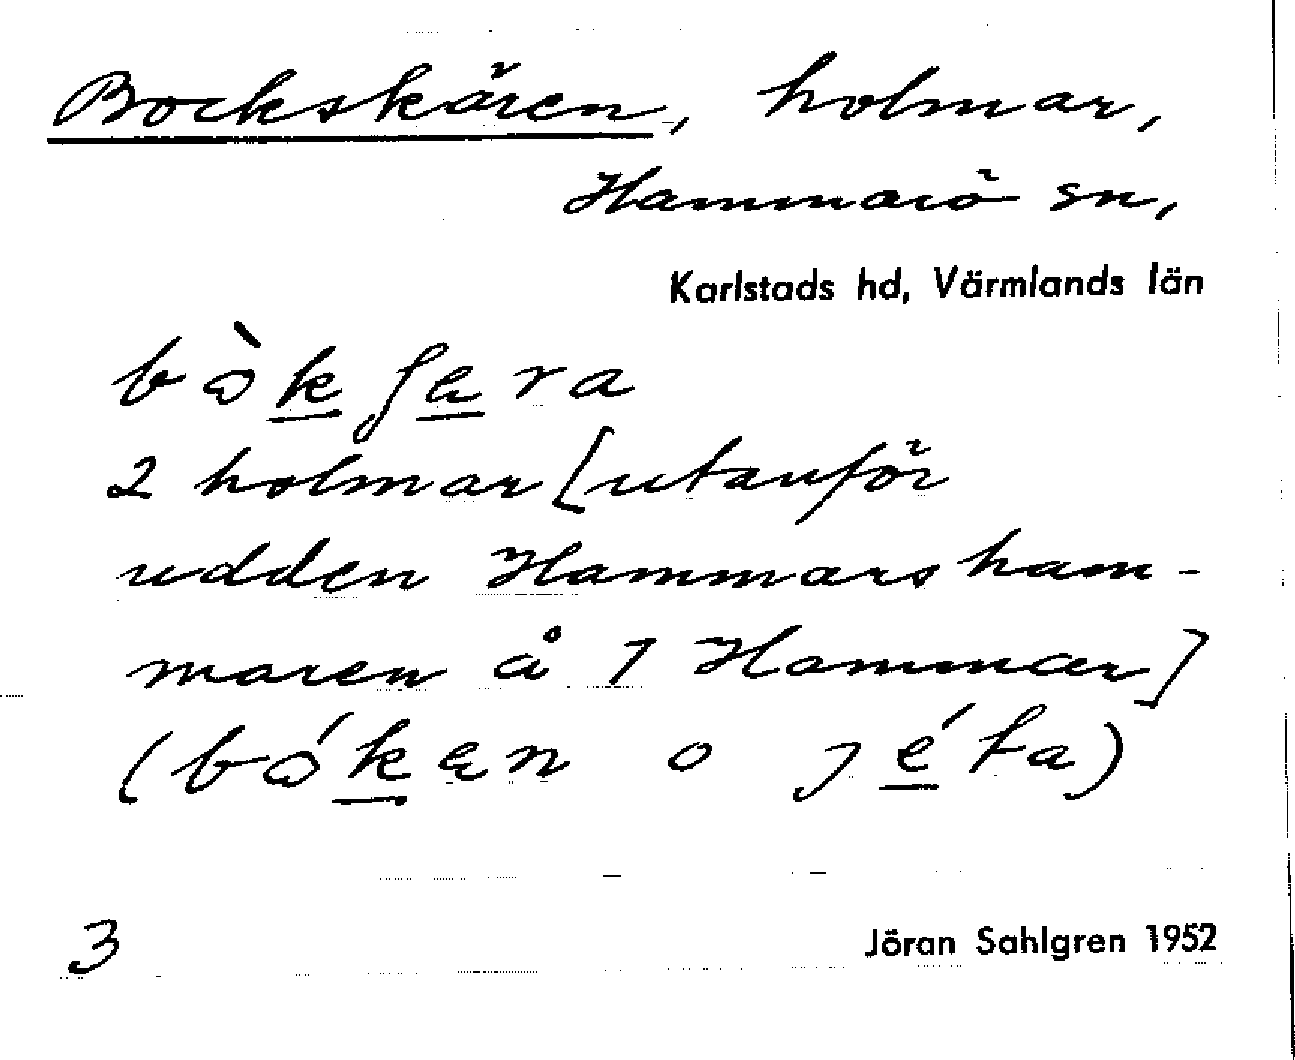 Bockskären, holmar,
Hammarö sn,
Karlstads hd, Värmlands län
2 holmar [utanför
udden Hammarsham-
maren å 1 Hammar]
3
Jöran Sahlgren 1952